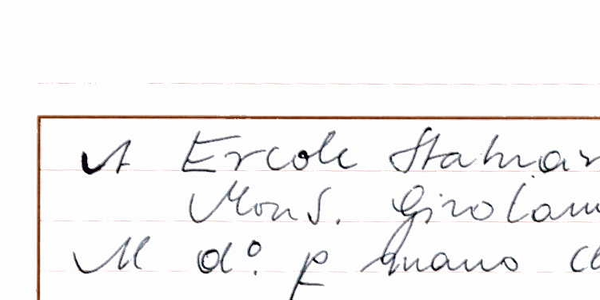 A Ercole Statuar
Mons. Girolam
M d.º p mano